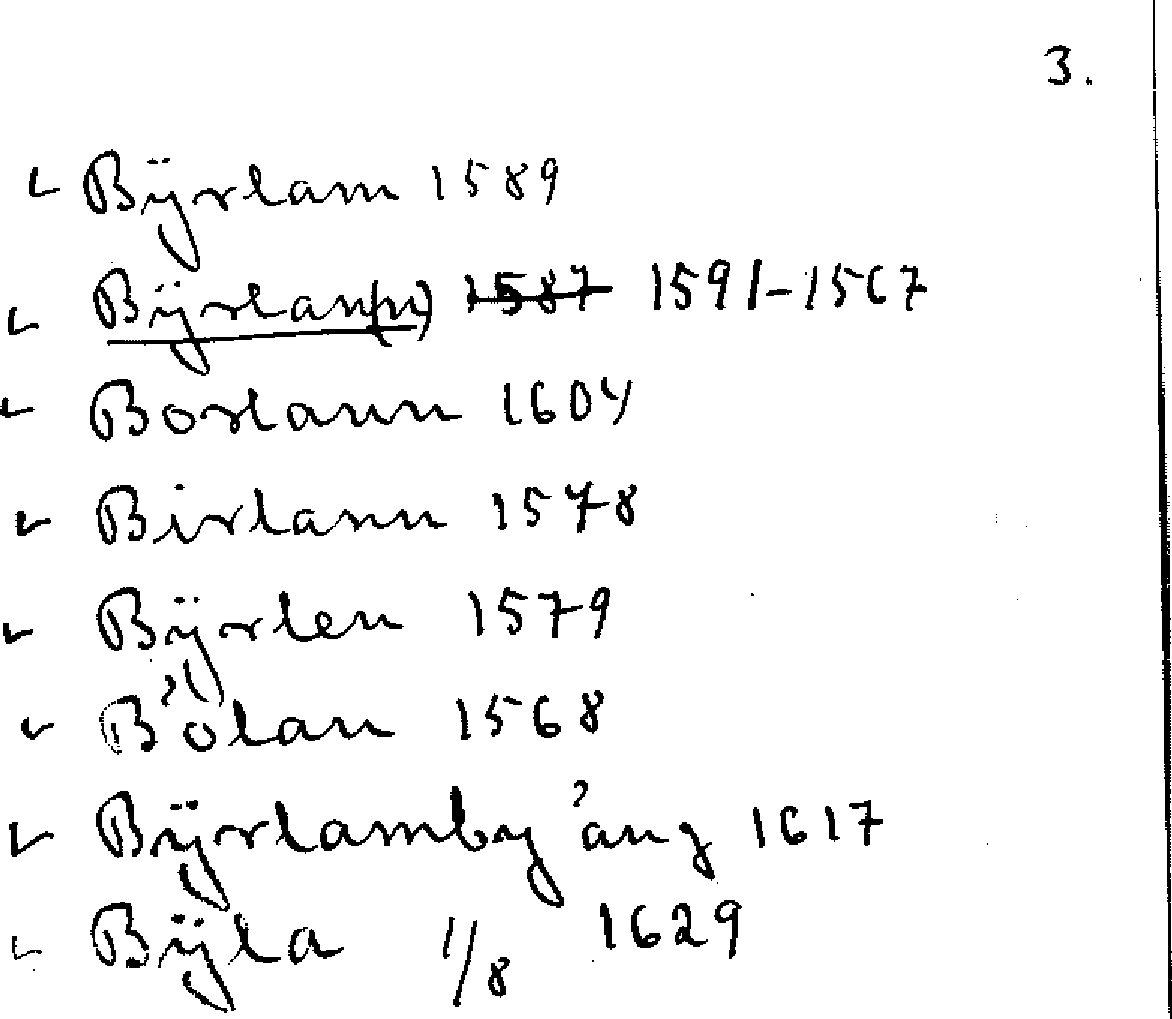 3.
Bÿrlam 1589
Bÿrlan(n) 1587 1591-1567
Borlann 1604
Birlann 1578
Bÿrlen 1579
Bölan 1568
Bÿrlamby äng 1617
Bÿla 1/8 1629